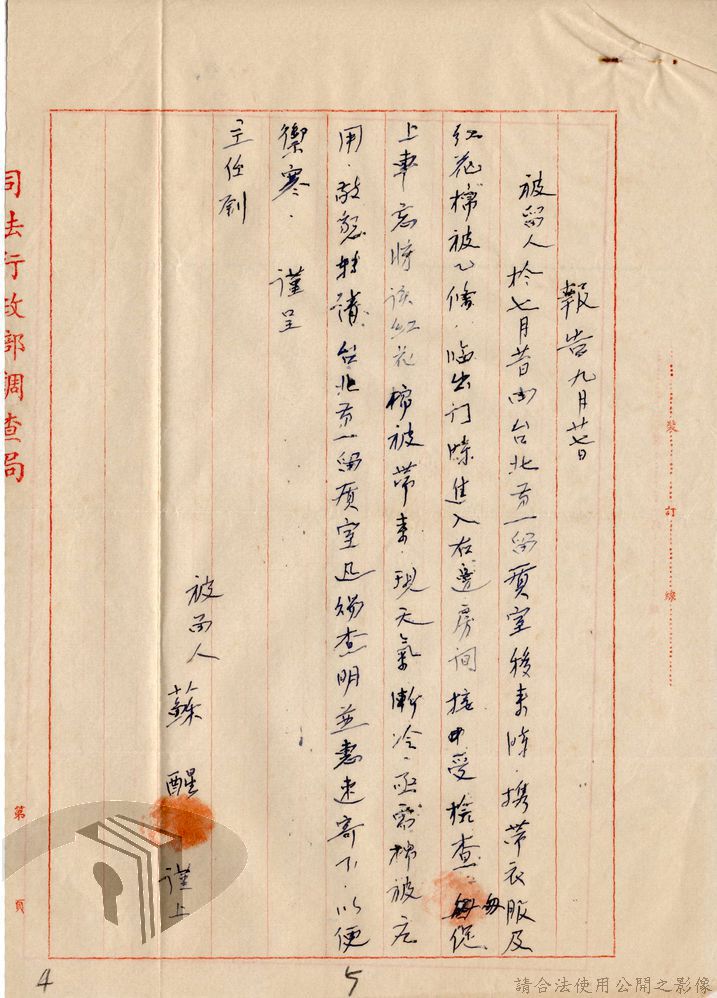 報告九月廿七日
被留人於七月廿日由台北第一留質室移來時．携帶衣服及
紅花棉被乙條．臨出门時進入右邊房间接受檢查．匆促
上車忘將該紅花棉被帶來．現天氣漸冷．亟需棉被应
用．敬懇轉請台北第一留質室迅賜查明並惠速寄下．以便
禦寒．　謹呈
主任劉
被留人　蘇醒　謹上
司法行政部調查局
第　頁
裝訂線
4
5
請合法使用公開之影像